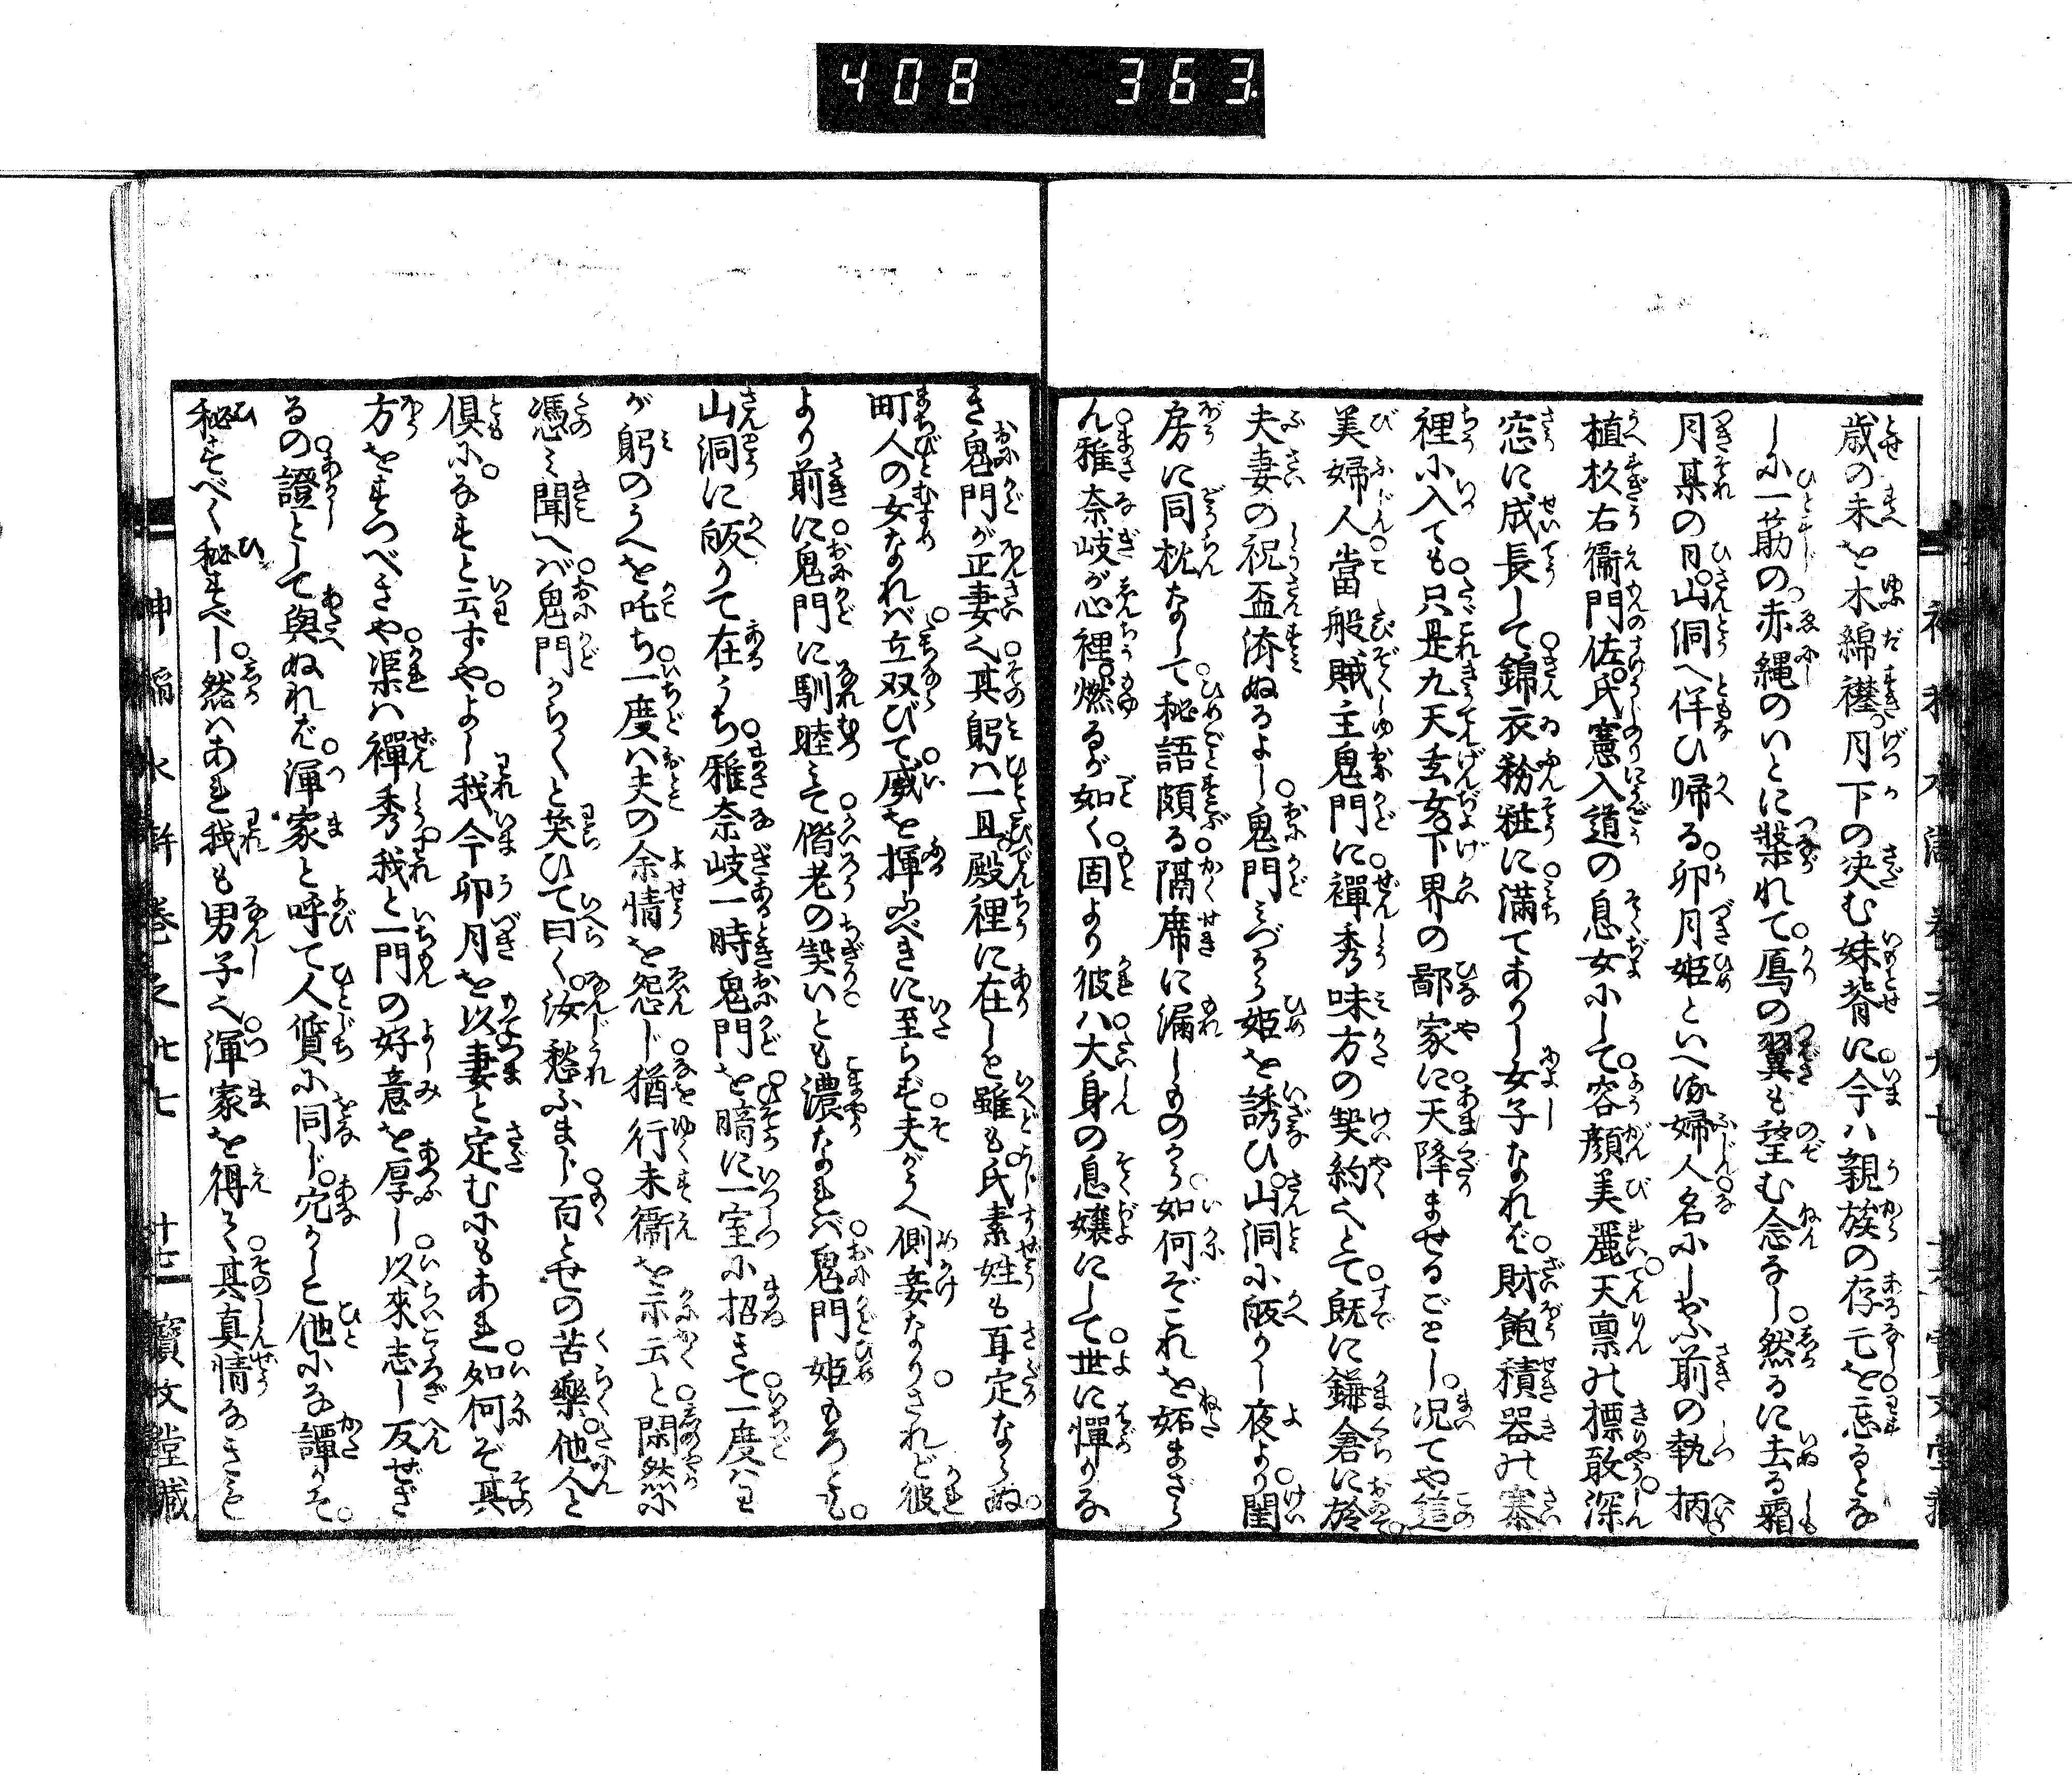 408 363.
歳の末を木綿襷月下の決む妹脊に今ハ親族の存亡を忘るとな
しに一筋の赤縄のいとに繋れて鳫の翼も望む念なし然るに去る霜
月某の日山洞へ伴ひ帰る卯月姫といへる婦人名にしおふ前の執柄
植杉右衞門佐氏憲入道の息女にして容顔美麗天禀の標致深
窓に成長して錦衣粉粧に満てありし女子なれば財飽積器の寨
裡に入ても只是九天玄女下界の鄙家に天降ませるごとし况てや這
美婦人當般賊主鬼門に禪秀味方の契約とて既に鎌倉に於
夫妻の祝盃濟ぬるよし鬼門みづから姫を誘ひ山洞に皈りし夜より閨
房に同枕なして秘語頗る隔席に漏しものから如何ぞこれを妬まざら
ん雅奈岐が心裡燃るが如く固より彼ハ大身の息嬢にして世に憚りな
き鬼門が正妻也其躬ハ一旦殿裡に在しと雖も氏素姓も耳定ならぬ
町人の女なれバ立双びて威を揮ふべきに至らず夫がうへ側妾なりされど彼
より前に鬼門に馴睦みて偕老の契いとも濃なれバ鬼門姫もろとも
山洞に皈りて在うち雅奈岐一時鬼門を暗に一室に招きて一度ハわ
が躬のうへを吒ち一度ハ夫の余情を怨じ猶行末衞を示云と閑然に
憑み聞へバ鬼門からからと笑ひて曰く汝愁ふまじ百とせの苦樂他人と
倶になすと云ずやよし我今卯月を以妻と定むにもあれ如何ぞ其
方をすつべきや渠ハ禪秀我と一門の好意を厚し以來志し反ぜざ
るの證として與ぬれば渾家と呼て人質に同じ穴かしこ他にな譚りそ
秘すべく秘すべし然ハあれ我も男子也渾家を得て其真情なきこと
神稲水滸 巻之廿七 十七 寶文堂藏